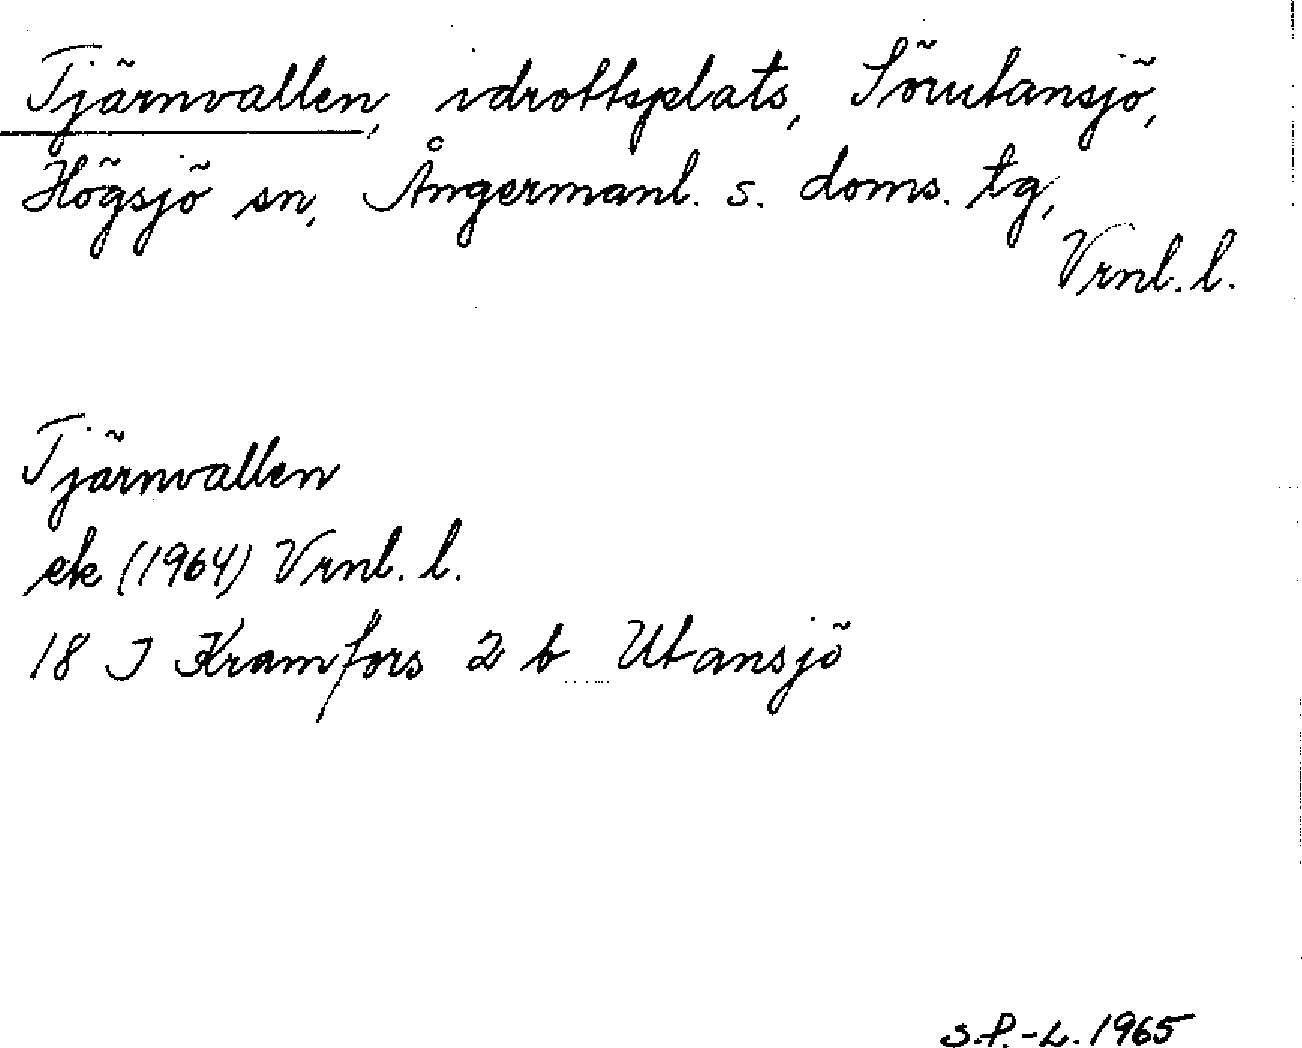 Tjärnvallen, idrottsplats, Sörutansjö,
Högsjö sn, Ångermanl. s. doms. tg,
Vrnl. l.
Tjärnvallen
ek (1964) Vrnl. l.
18 J Kramfors 2 b Utansjö
S.P.-L. 1965